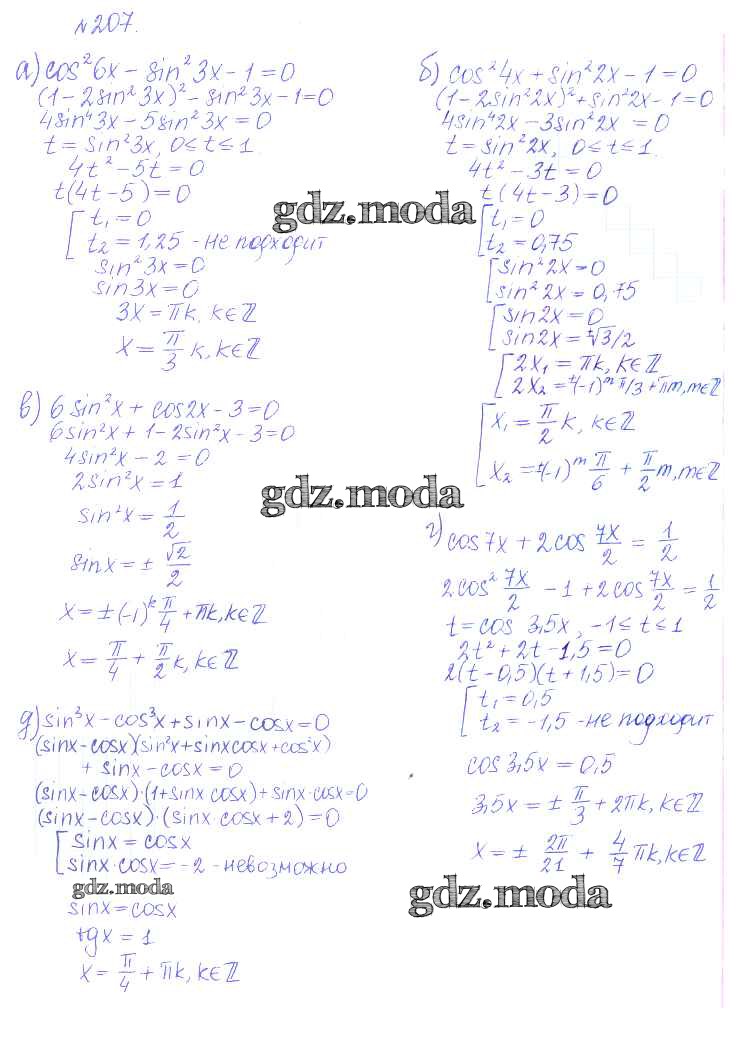 №207.
а) cos²6x – sin²3x – 1 = 0
(1 – 2sin²3x)² – sin²3x – 1 = 0
4sin⁴3x – 5sin²3x = 0
t = sin²3x, 0 ≤ t ≤ 1.
4t² – 5t = 0
t(4t – 5) = 0
gdz.moda
[ t₁ = 0
t₂ = 1,25 - не подходит
sin²3x = 0
sin3x = 0
3x = πk, k∈ℤ
x = π/3 k, k∈ℤ
б) cos²4x + sin²2x – 1 = 0
(1 – 2sin²2x)² + sin²2x – 1 = 0
4sin⁴2x – 3sin²2x = 0
t = sin²2x, 0 ≤ t ≤ 1.
4t² – 3t = 0
t(4t – 3) = 0
[ t₁ = 0
t₂ = 0,75
[ sin²2x = 0
sin²2x = 0,75
[ sin2x = 0
sin2x = ±√3/2
[ 2x₁ = πk, k∈ℤ
2x₂ = ±(-1)ᵐ π/3 + πm, m∈ℤ
[ x₁ = π/2 k, k∈ℤ
x₂ = ±(-1)ᵐ π/6 + π/2 m, m∈ℤ
в) 6sin²x + cos2x – 3 = 0
6sin²x + 1 – 2sin²x – 3 = 0
4sin²x – 2 = 0
2sin²x = 1
gdz.moda
sin²x = 1/2
sinx = ± √2/2
x = ±(-1)ᵏ π/4 + πk, k∈ℤ
x = π/4 + π/2 k, k∈ℤ
г) cos7x + 2cos 7x/2 = 1/2
2cos² 7x/2 – 1 + 2cos 7x/2 = 1/2
t = cos 3,5x, –1 ≤ t ≤ 1
2t² + 2t – 1,5 = 0
2(t – 0,5)(t + 1,5) = 0
[ t₁ = 0,5
t₂ = –1,5 - не подходит
cos 3,5x = 0,5
3,5x = ± π/3 + 2πk, k∈ℤ
x = ± 2π/21 + 4/7 πk, k∈ℤ
gdz.moda
д) sin³x – cos³x + sinx – cosx = 0
(sinx – cosx)(sin²x + sinxcosx + cos²x)
+ sinx – cosx = 0
(sinx – cosx)·(1 + sinx cosx) + sinx·cosx = 0
(sinx – cosx)·(sinx·cosx + 2) = 0
[ sinx = cosx
sinx·cosx = –2 - невозможно
gdz.moda
sinx = cosx
tgx = 1
x = π/4 + πk, k∈ℤ